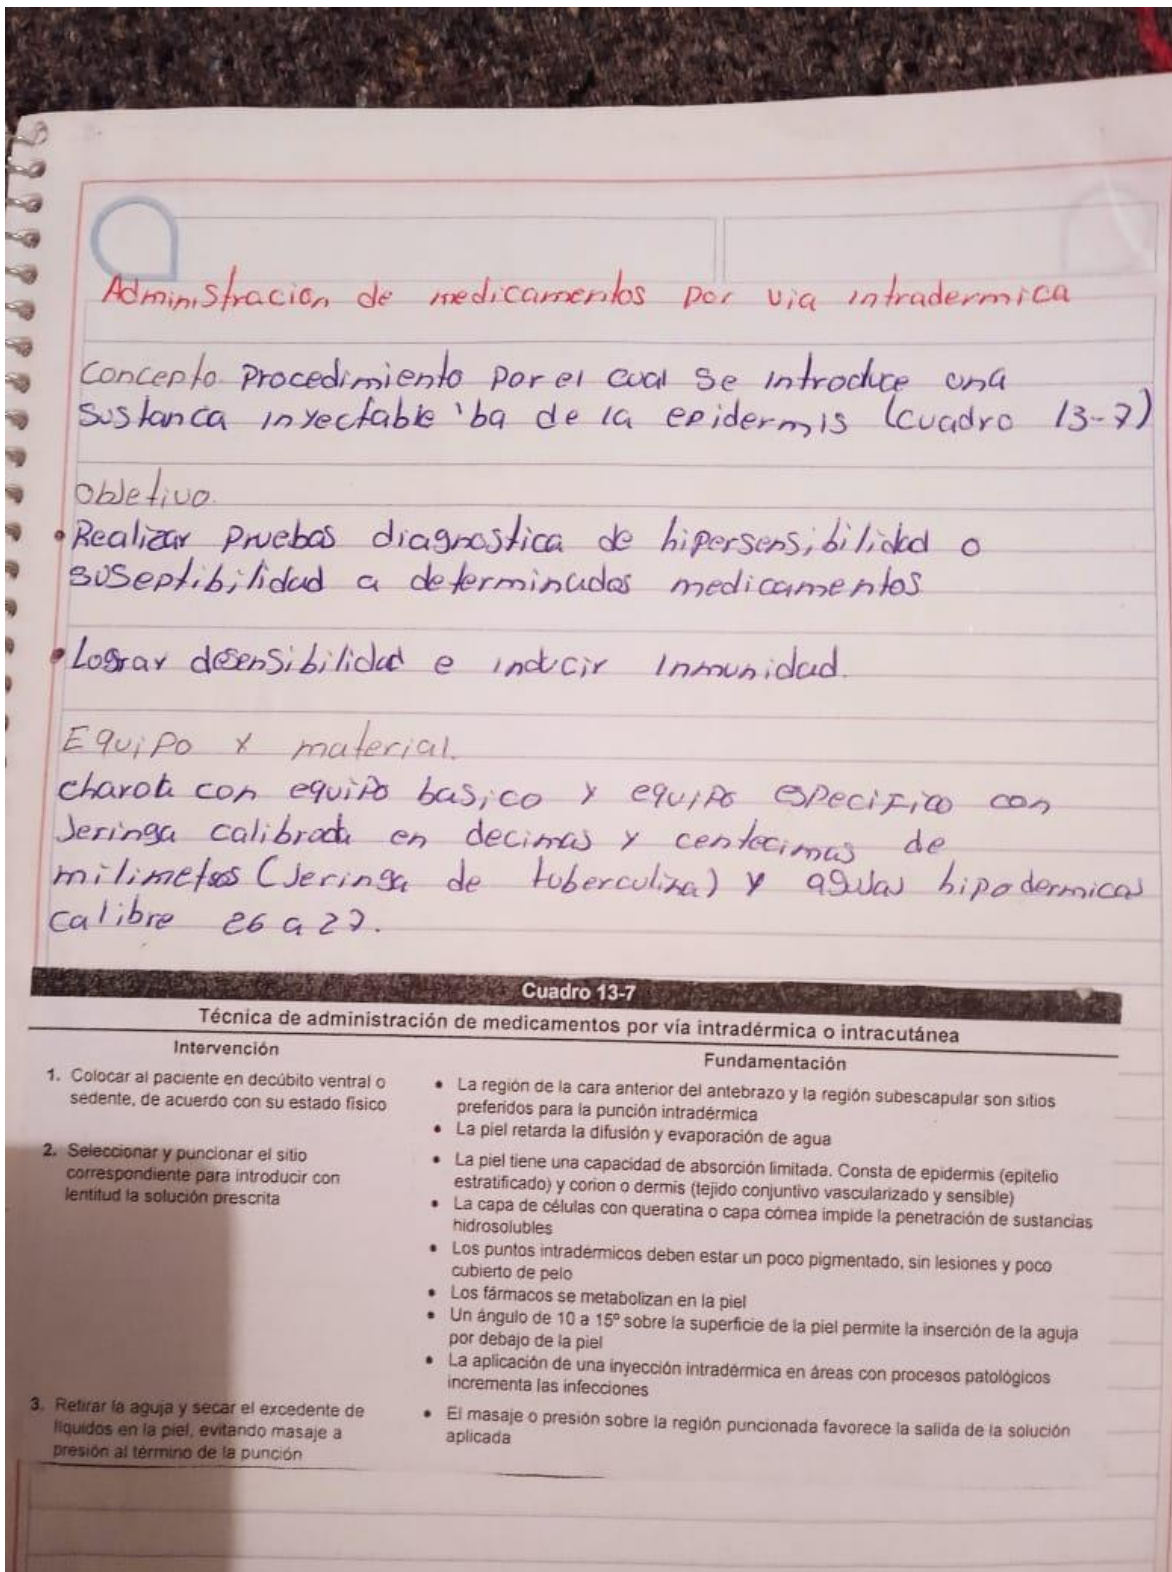 Administracion de medicamentos por via intradermica
Concepto. Procedimiento por el cual se introduce una
sustanca inyectable 'ba de la epidermis (cuadro 13-7)
objetivo.
• Realizar Pruebas diagnostica de hipersensibilidad o
suseptibilidad a determinados medicamentos
• Lograr desensibilidad e inducir inmunidad.
Equipo y material.
charola con equipo basico y equipo especifico con
Jeringa calibrada en decimas y centecimas de
milimetros (Jeringa de tuberculina) y agujas hipodermicas
calibre 26 a 27.
Cuadro 13-7
Técnica de administración de medicamentos por vía intradérmica o intracutánea
Intervención
Fundamentación
1. Colocar al paciente en decúbito ventral o
sedente, de acuerdo con su estado físico
• La región de la cara anterior del antebrazo y la región subescapular son sitios
preferidos para la punción intradérmica
• La piel retarda la difusión y evaporación de agua
2. Seleccionar y puncionar el sitio
correspondiente para introducir con
lentitud la solución prescrita
• La piel tiene una capacidad de absorción limitada. Consta de epidermis (epitelio
estratificado) y corion o dermis (tejido conjuntivo vascularizado y sensible)
• La capa de células con queratina o capa córnea impide la penetración de sustancias
hidrosolubles
• Los puntos intradérmicos deben estar un poco pigmentado, sin lesiones y poco
cubierto de pelo
• Los fármacos se metabolizan en la piel
• Un ángulo de 10 a 15° sobre la superficie de la piel permite la inserción de la aguja
por debajo de la piel
• La aplicación de una inyección intradérmica en áreas con procesos patológicos
incrementa las infecciones
3. Retirar la aguja y secar el excedente de
líquidos en la piel, evitando masaje a
presión al término de la punción
• El masaje o presión sobre la región puncionada favorece la salida de la solución
aplicada